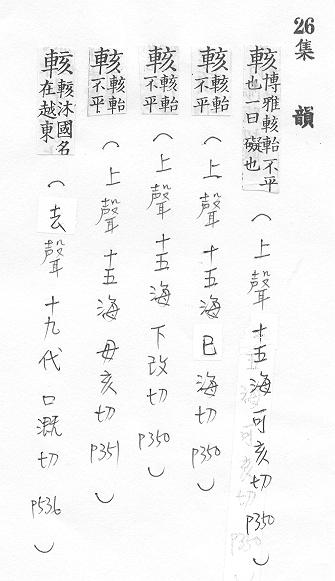 26 集韻
輆 博雅輆軩不平也一曰礙也 (上聲 十五海 可亥切 P350)
輆 輆軩不平 (上聲 十五海 巳海切 P350)
輆 輆軩不平 (上聲 十五海 下改切 P350)
輆 輆軩不平 (上聲 十五海 毋亥切 P351)
輆 輆沐國名在越東 (去聲 十九代 口溉切 P536)